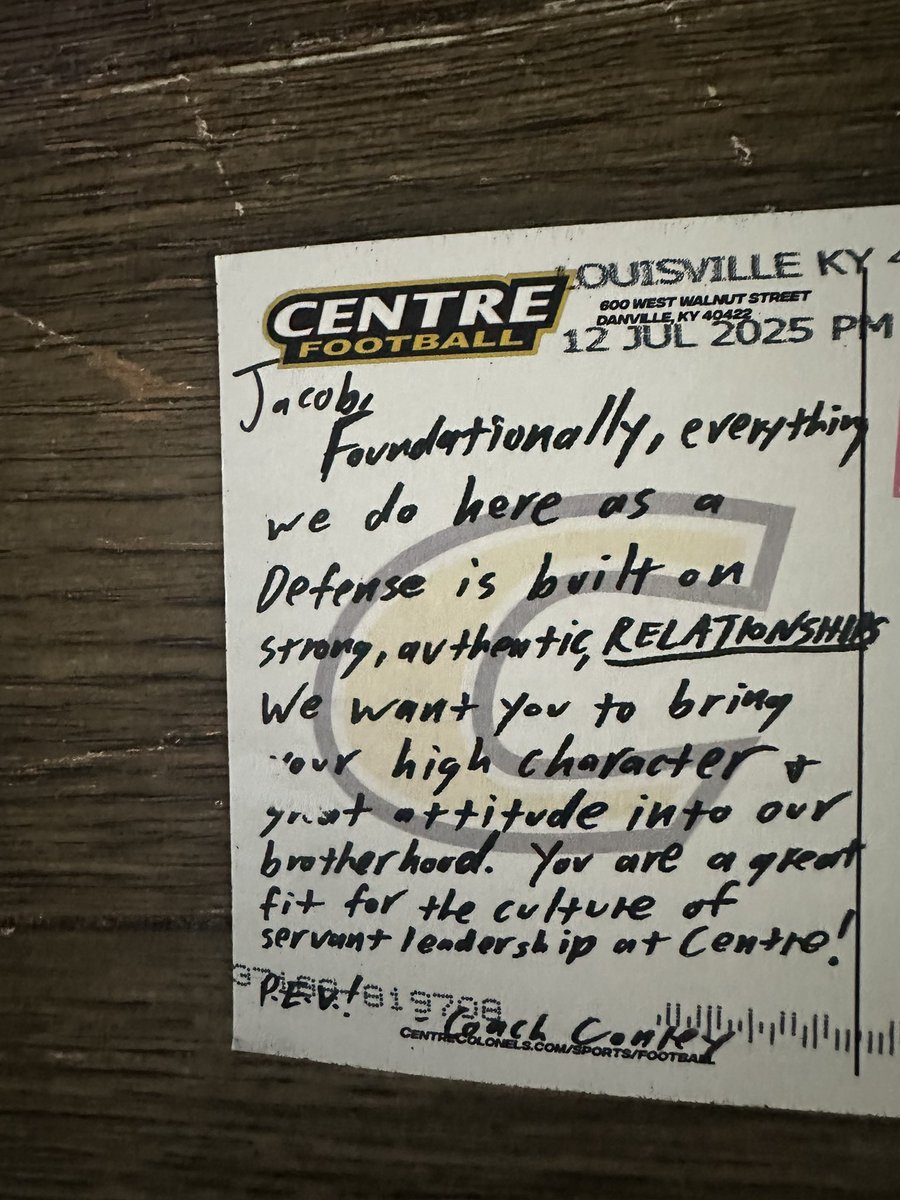 CENTRE
FOOTBALL
LOUISVILLE KY 4
600 WEST WALNUT STREET
DANVILLE, KY 40422
12 JUL 2025 PM
Jacob,
Foundationally, everything
we do here as a
Defense is built on
strong, authentic, RELATIONSHIPS
We want you to bring
your high character &
great attitude into our
brotherhood. You are a great
fit for the culture of
servant leadership at Centre!
P.E.V.!
- Coach Conley
CENTRECOLONELS.COM/SPORTS/FOOTBALL